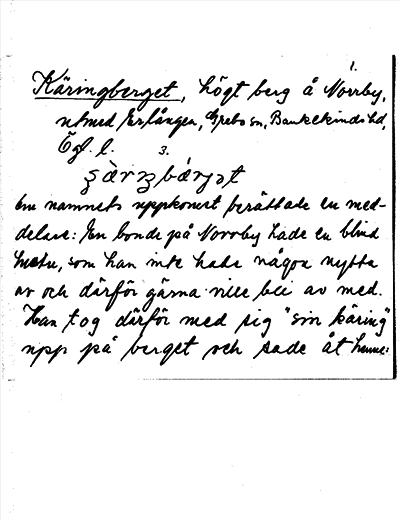 1.
Käringberget, högt berg å Norrby,
ut med Erlången, Grebo sn, Bankekinds hd,
Ögl. l. 3.
Om namnets uppkomst berättade en med-
delare: En bonde på Norrby hade en blind
hustru, som han inte hade någon nytta
av och därför gärna ville bli av med.
Han tog därför med sig "sin käring"
upp på berget och sade åt henne: